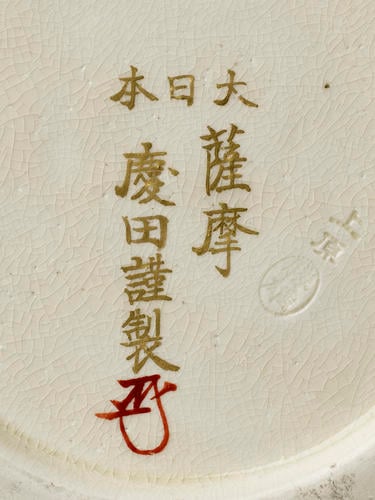 大日本
薩摩
慶田謹製
上原